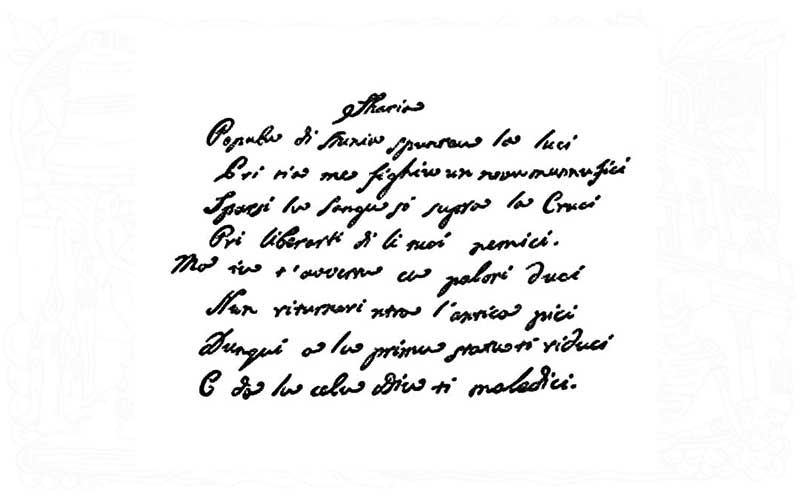 Maria
Populu di Hunia spuntau la luci
Pri tia me fighiu un novu munnu fici
Sparsi lu sangu sò supra la Cruci
Pri liberarti di li toi nemici.
Ma iu t'avvertu cu palori duci
Nun riturnari ntra l'antica pici
Dunqui a lu primu statu ti riduci
E da lu celu Diu ti maledici.